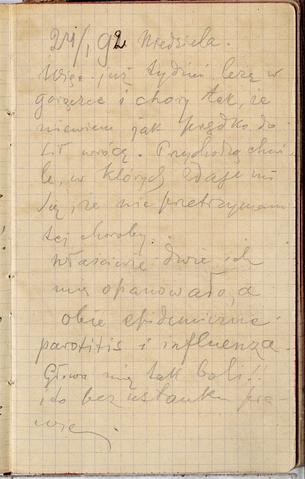 24/I, 92 Niedziela.
Więc już tydzień leżę w
gorączce i chory tak, że
niewiem jak prędko do
sił wrócę. Przychodzą chwi-
le, w których zdaje mi
się, że nie przetrzymam
tej choroby.
Właściwie dwie ich
mię opanowało, a
obie epidemiczne
parotitis i influenza.
Głowa mię tak boli!!
i to bez ustanku pra-
wie,